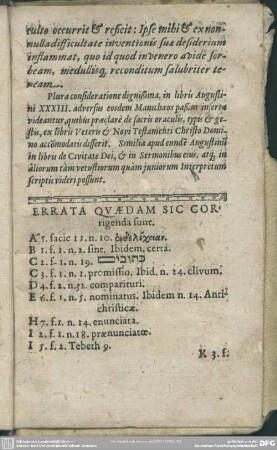 culto occurrit & reficit: Ipse mihi & ex non-
nulla difficultate inventionis suæ desiderium
inflammat, quo id quod invenero avide sor-
beam, medullisq; reconditum salubriter te-
neam.
Plura consideratione dignissima, in libris Augusti-
ni XXXIII. adversus eosdem Manichæos passim inserta
videantur, quibus præclarè de sacris oraculis, typis & ge-
stis, ex libris Veteris & Novi Testamenti Christo Domi-
no accomodatis disserit. Similia apud eundē Augustinū
in libris de Civitate Dei, & in Sermonibus eius, atq; in
aliorum tàm vetustiorum quàm juniorum Interpretum
scriptis videri possunt.
ERRATA QVÆDAM SIC COR-
rigenda sunt.
A 5. facie 11. n. 10. ἐνδελέχειαν.
B 1. f. 1. n. 2. sint. Ibidem, certa.
C 2. f. 1. n. 19. כתובים
C 3. f. 1. n. 1. promissio. Ibid. n. 14. clivum.
D 4. f. 2. n. 32. comparituri.
E 6. f. 1. n. 5. nominatus. Ibidem n. 14. Anti-
christicæ.
H 7. f. 1. n. 14. enunciata.
I 2. f. 1. n. 18. prænunciatæ.
I 5. f. 2. Tebeth 9.
K 3. f.